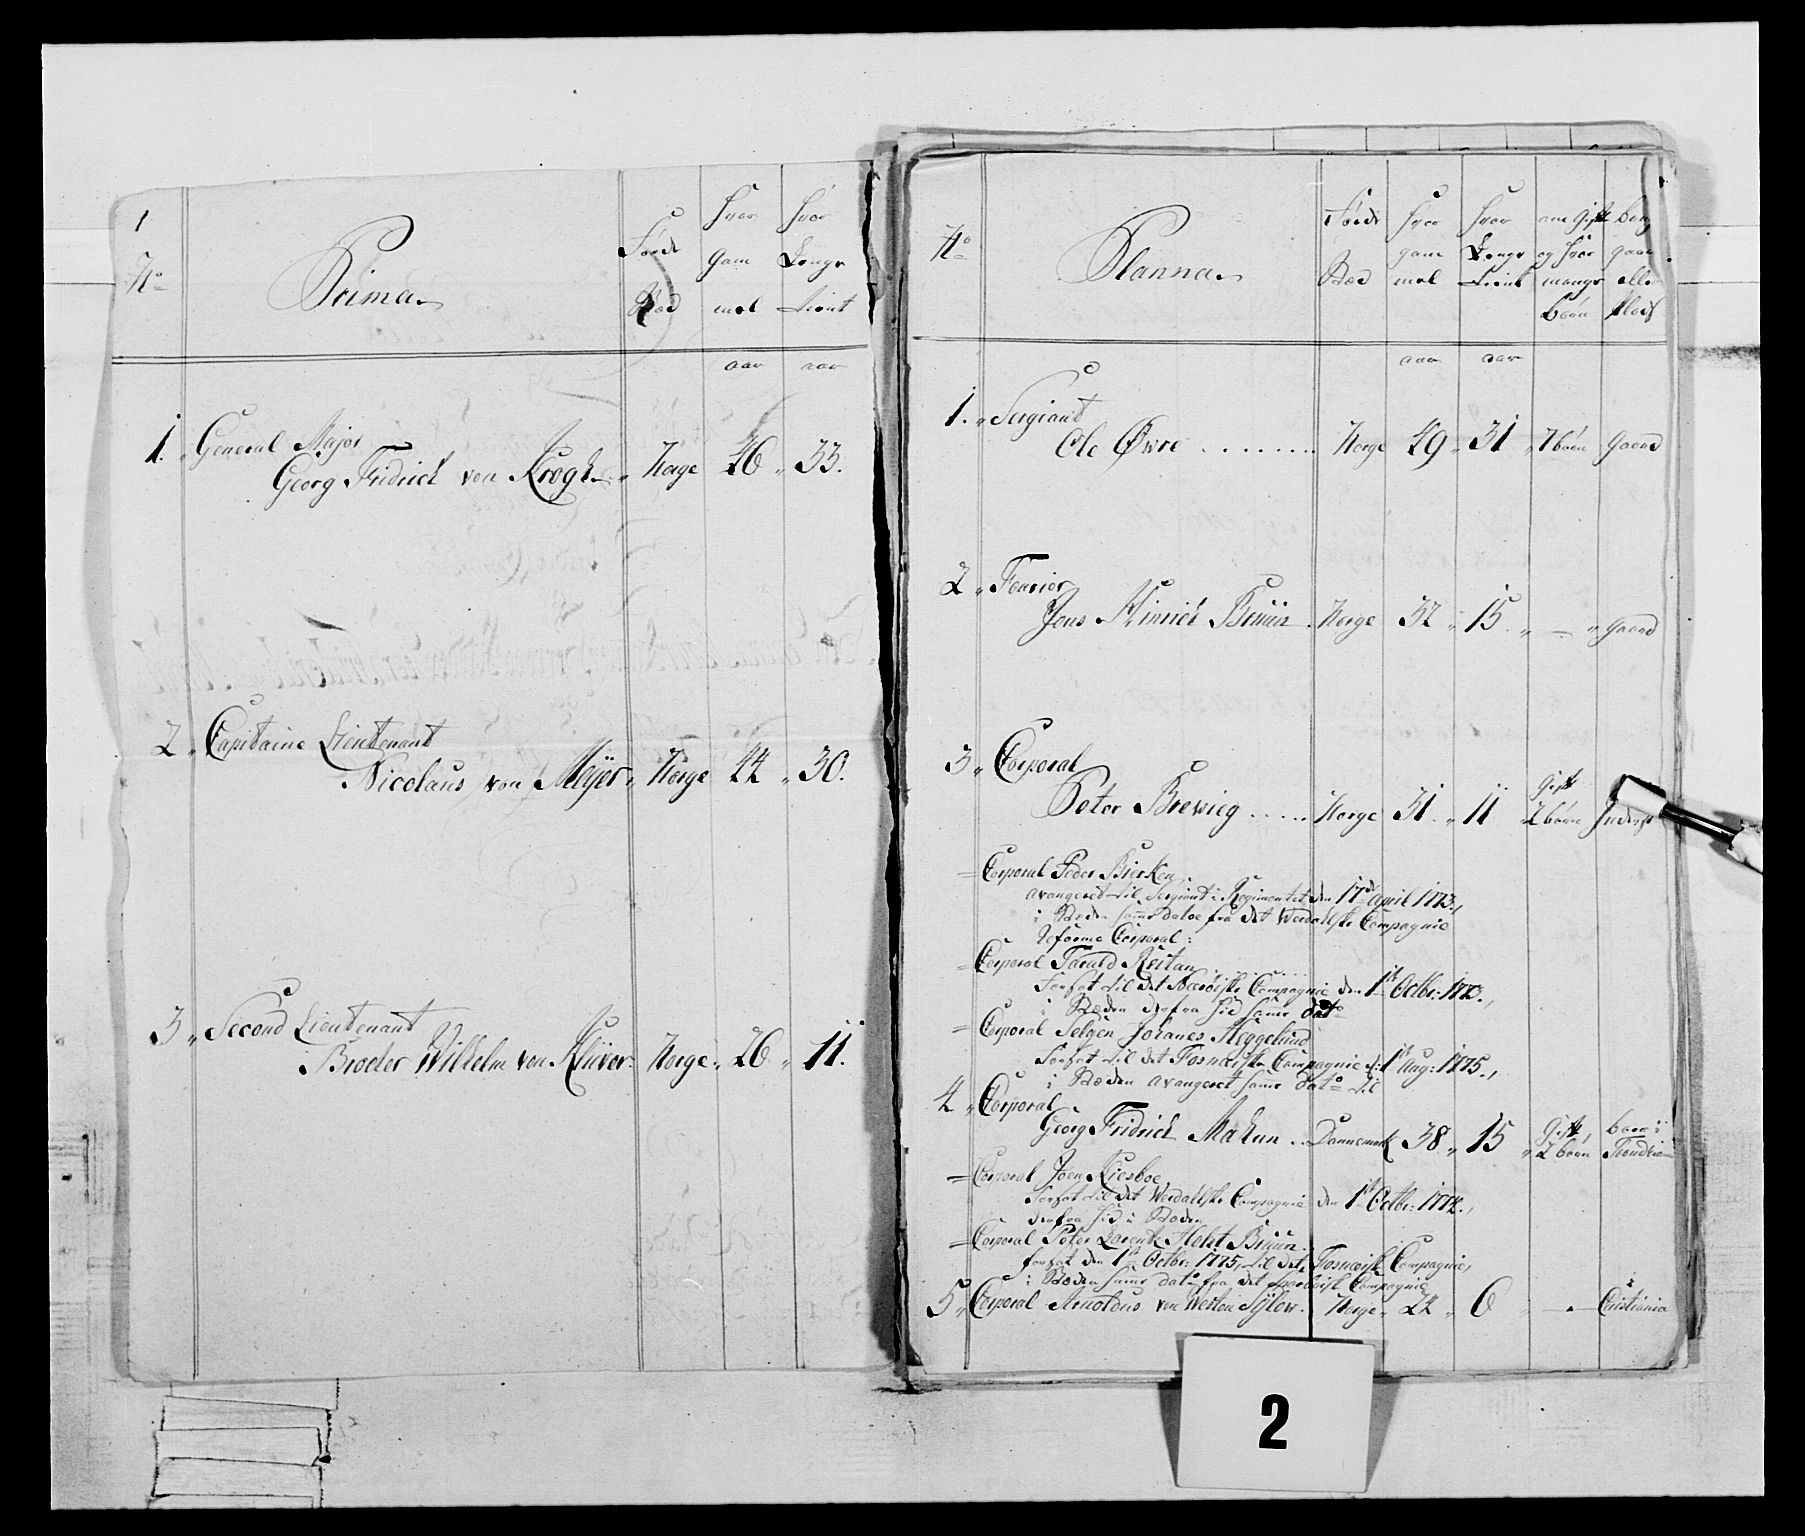 1
No
Prima
Födt
Hvor
Hvor
Gam
Længe
mel
tient
aar
aar
1. General Major
Georg Fridrich von Krogh Norge 46 33.
2 Capitaine Lieutenant
Nicolaus von Meÿer Norge 44 30.
3 Second Lieutenant
Broder Wilhelm von Klüver Norge 26 11.
No
Planna
Födt Hvor Hvor om Gift
gam Længe og Hvor gaar
mel tient mange eller
börn Plads
aar aar
1. Sergiant
Ole Øvre ........ Norge 49 31 7 börn Gaard
2 Fourier
Jens Hinrich Bruun Norge 32 15 — Gaard
3 Corporal
Gift
Peter Brewieg ..... Norge 31 11 2 börn
= Corporal Peder Bierken
avangeret til Sergiant i Regimentet den 17de April 1773.,
i Stæden samme datoe fra det Werdalske Compagnie
Reforme Corporal:
= Corporal Tarald Reitan
forsat til det Compagnie den 1ste Octbr: 1773.,
i Stæden derfra hid samme dato
= Corporal Selgen Johanes Heggelund
forsat til det Fosnæiske Compagnie d: 1st Aug: 1775.,
i Stæden avangeret samme dato til
4 Corporal
Georg Fridrich Makun .. Dannemark 38 15 Gift, 2 börn boer i Trondhiem
= Corporal Joen Riesboe
forsat til det Werdalske Compagnie den 1ste Octbr: 1774.,
derfra hid i Stæden
= Corporal Peter Lorentz Holst Bruun
forsat den 1ste Octbr: 1775, til det Fosnæisk Compagnie,
i Stæden samme dato fra det Compagnie
5 Corporal Arnoldus von Westen Sylow. Norge 24 6 — i Cristiania
2